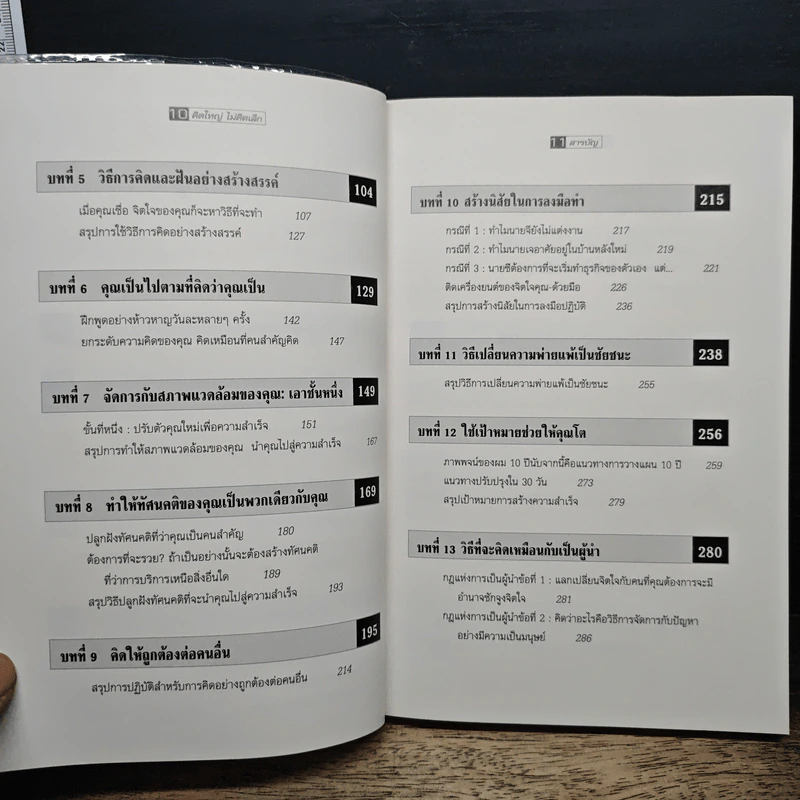 10 คิดใหญ่ ไม่คิดเล็ก
บทที่ 5 วิธีการคิดและฝันอย่างสร้างสรรค์ 104
เมื่อคุณเชื่อ จิตใจของคุณก็จะหาวิธีที่จะทำ 107
สรุปการใช้วิธีการคิดอย่างสร้างสรรค์ 127
บทที่ 6 คุณเป็นไปตามที่คิดว่าคุณเป็น 129
ฝึกพูดอย่างห้าวหาญวันละหลายๆ ครั้ง 142
ยกระดับความคิดของคุณ คิดเหมือนที่คนสำคัญคิด 147
บทที่ 7 จัดการกับสภาพแวดล้อมของคุณ: เอาชั้นหนึ่ง 149
ขั้นที่หนึ่ง : ปรับตัวคุณใหม่เพื่อความสำเร็จ 151
สรุปการทำให้สภาพแวดล้อมของคุณ นำคุณไปสู่ความสำเร็จ 167
บทที่ 8 ทำให้ทัศนคติของคุณเป็นพวกเดียวกับคุณ 169
ปลูกฝังทัศนคติที่ว่าคุณเป็นคนสำคัญ 180
ต้องการที่จะรวย? ถ้าเป็นอย่างนั้นจะต้องสร้างทัศนคติ
ที่ว่าการบริการเหนือสิ่งอื่นใด 189
สรุปวิธีปลูกฝังทัศนคติที่จะนำคุณไปสู่ความสำเร็จ 193
บทที่ 9 คิดให้ถูกต้องต่อคนอื่น 195
สรุปการปฏิบัติสำหรับการคิดอย่างถูกต้องต่อคนอื่น 214
11 สารบัญ
บทที่ 10 สร้างนิสัยในการลงมือทำ 215
กรณีที่ 1 : ทำไมนายจียังไม่แต่งงาน 217
กรณีที่ 2 : ทำไมนายเจอาศัยอยู่ในบ้านหลังใหม่ 219
กรณีที่ 3 : นายซีต้องการที่จะเริ่มทำธุรกิจของตัวเอง แต่... 221
ติดเครื่องยนต์ของจิตใจคุณ-ด้วยมือ 226
สรุปการสร้างนิสัยในการลงมือปฏิบัติ 236
บทที่ 11 วิธีเปลี่ยนความพ่ายแพ้เป็นชัยชนะ 238
สรุปวิธีการเปลี่ยนความพ่ายแพ้เป็นชัยชนะ 255
บทที่ 12 ใช้เป้าหมายช่วยให้คุณโต 256
ภาพพจน์ของผม 10 ปีนับจากนี้คือแนวทางการวางแผน 10 ปี 259
แนวทางปรับปรุงใน 30 วัน 273
สรุปเป้าหมายการสร้างความสำเร็จ 279
บทที่ 13 วิธีที่จะคิดเหมือนกับเป็นผู้นำ 280
กฎแห่งการเป็นผู้นำข้อที่ 1 : แลกเปลี่ยนจิตใจกับคนที่คุณต้องการจะมี
อำนาจชักจูงจิตใจ 281
กฎแห่งการเป็นผู้นำข้อที่ 2 : คิดว่าอะไรคือวิธีการจัดการกับปัญหา
อย่างมีความเป็นมนุษย์ 286